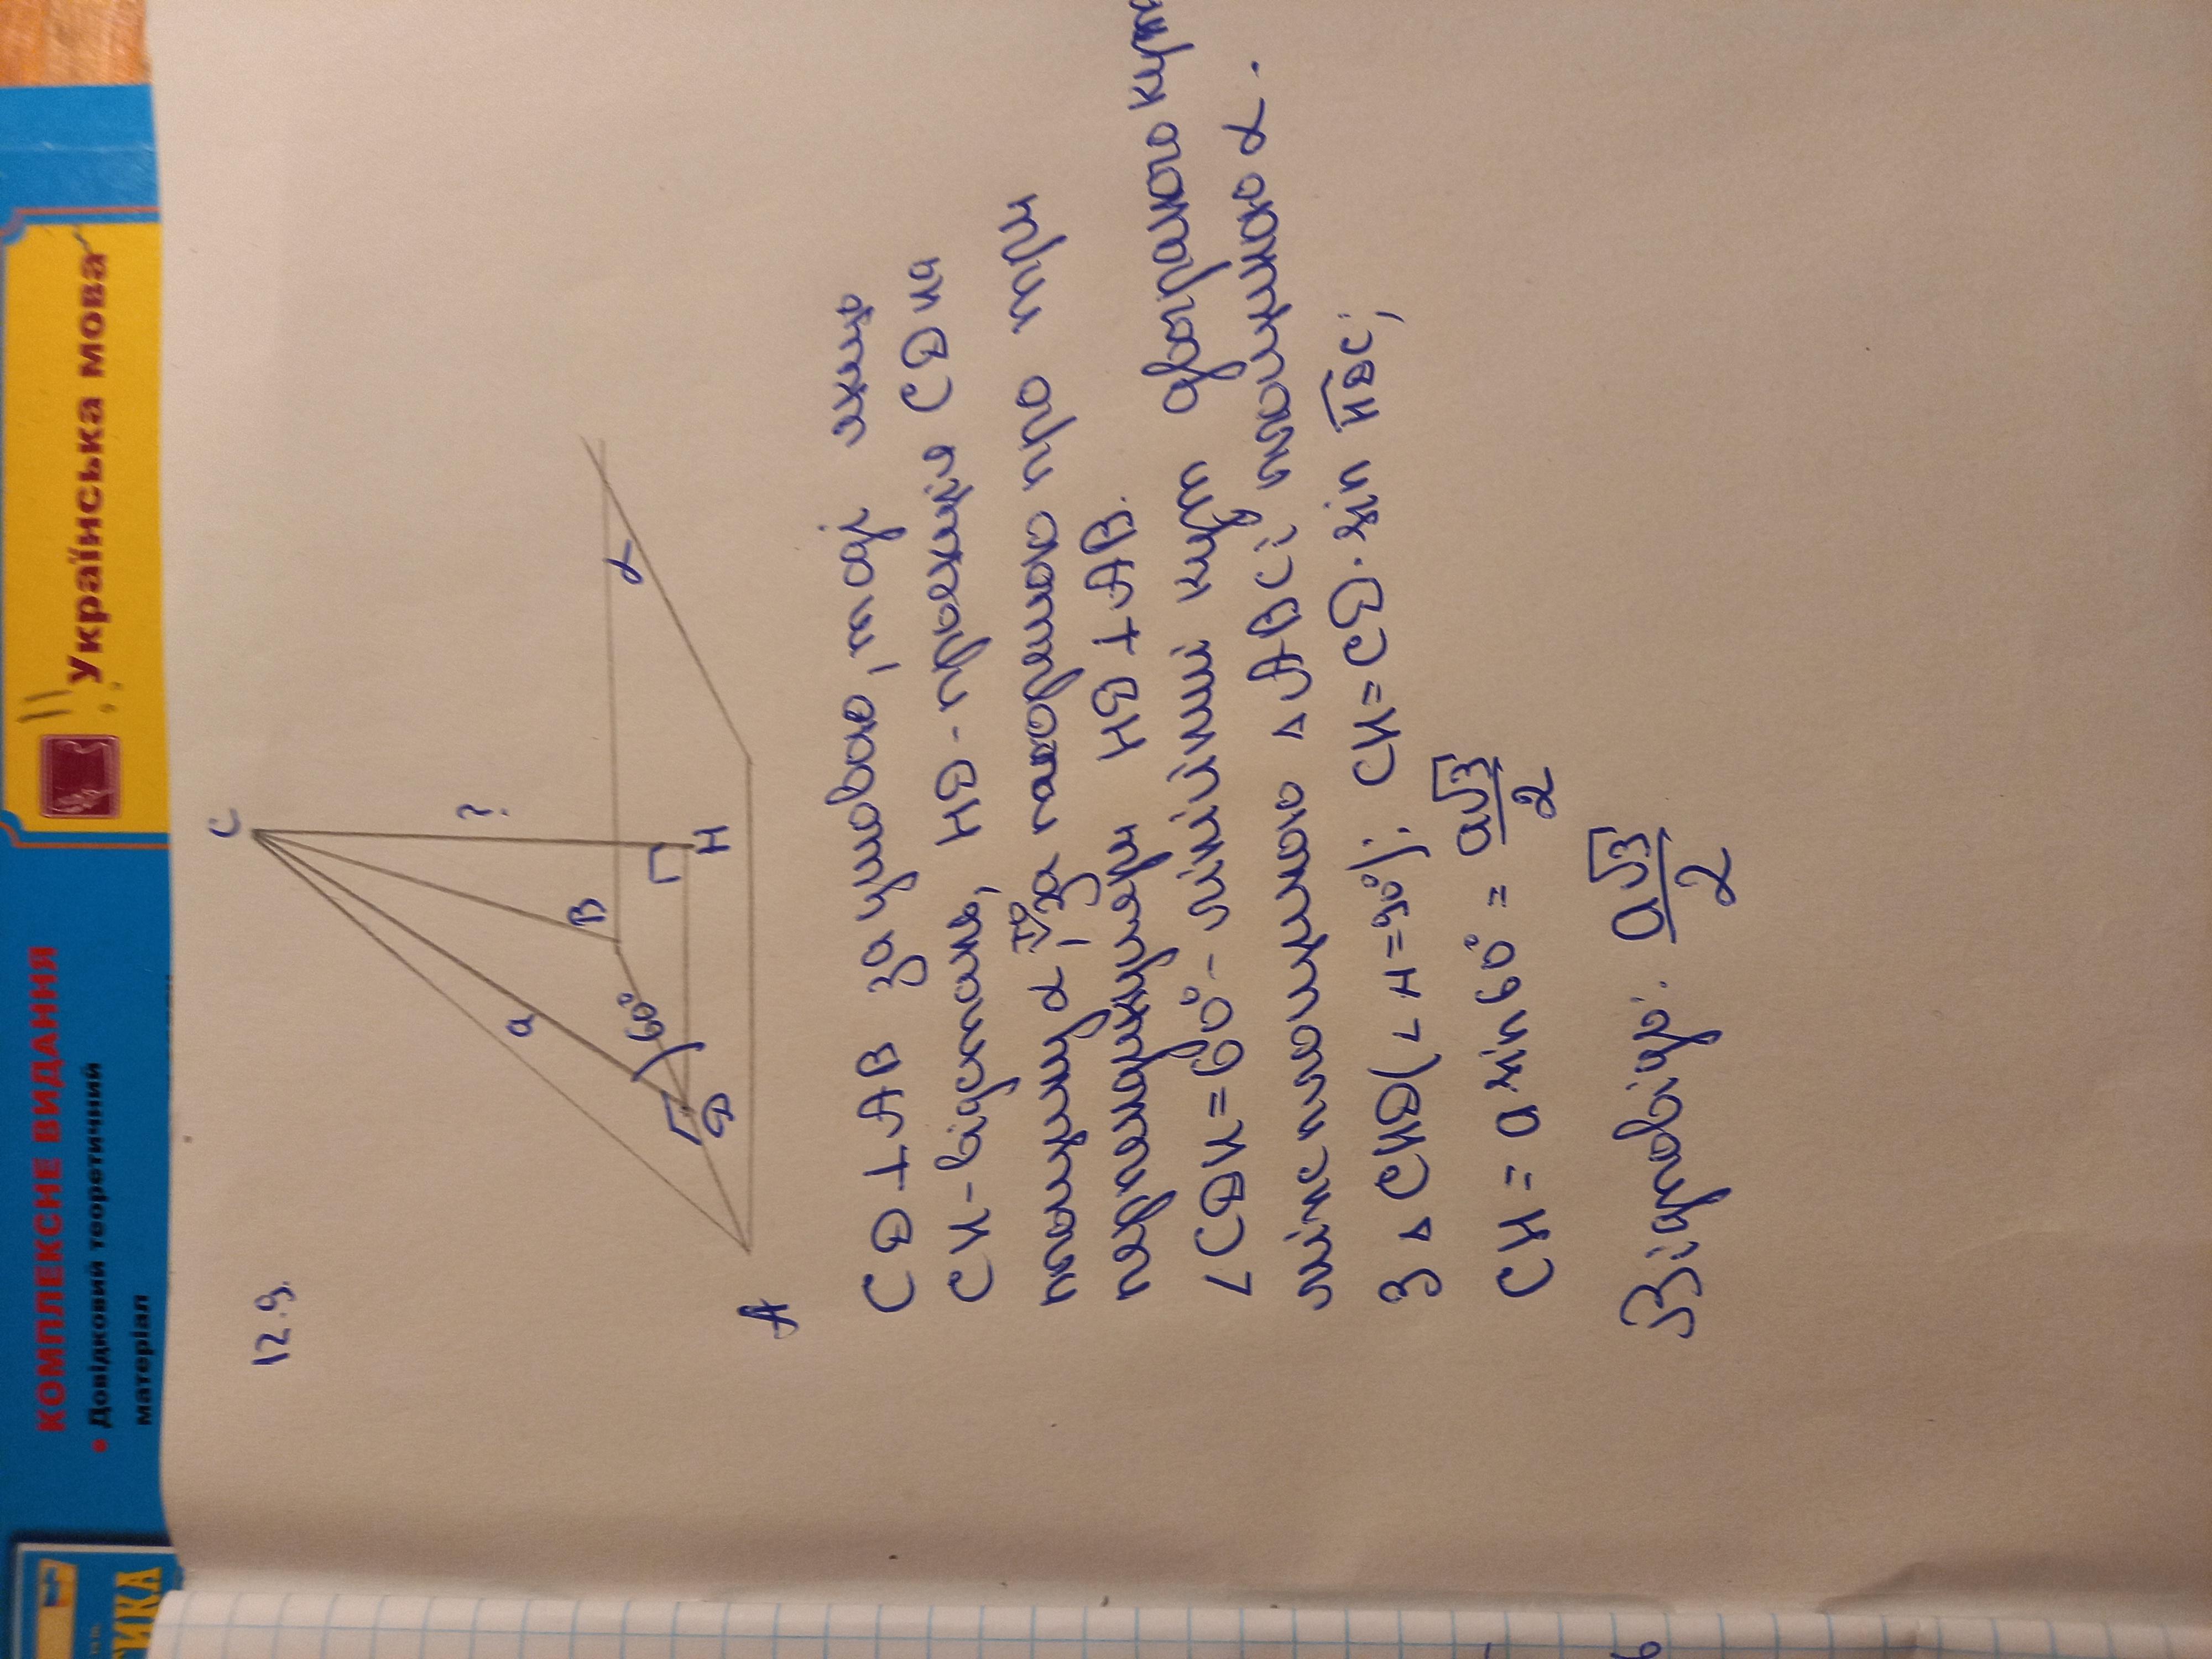 КОМПЛЕКСНЕ ВИДАННЯ
• Довідковий теоретичний
матеріал
11
Українська мова
ТИКА
12.9.
C
?
a
B
60°
D
H
A
α
CD⊥AB за умовою, тоді якщо
CH-відстань, HD-проекція CD на
площину α, за теоремою про три
перпендикуляри HD⊥AB.
∠CDH=60°- лінійний кут двогранного кута
між площиною △ABC і площиною α.
З △CHD(∠H=90°): CH=CD·sin HDC;
CH = a sin 60° = a√3/2
Відповідь: a√3/2